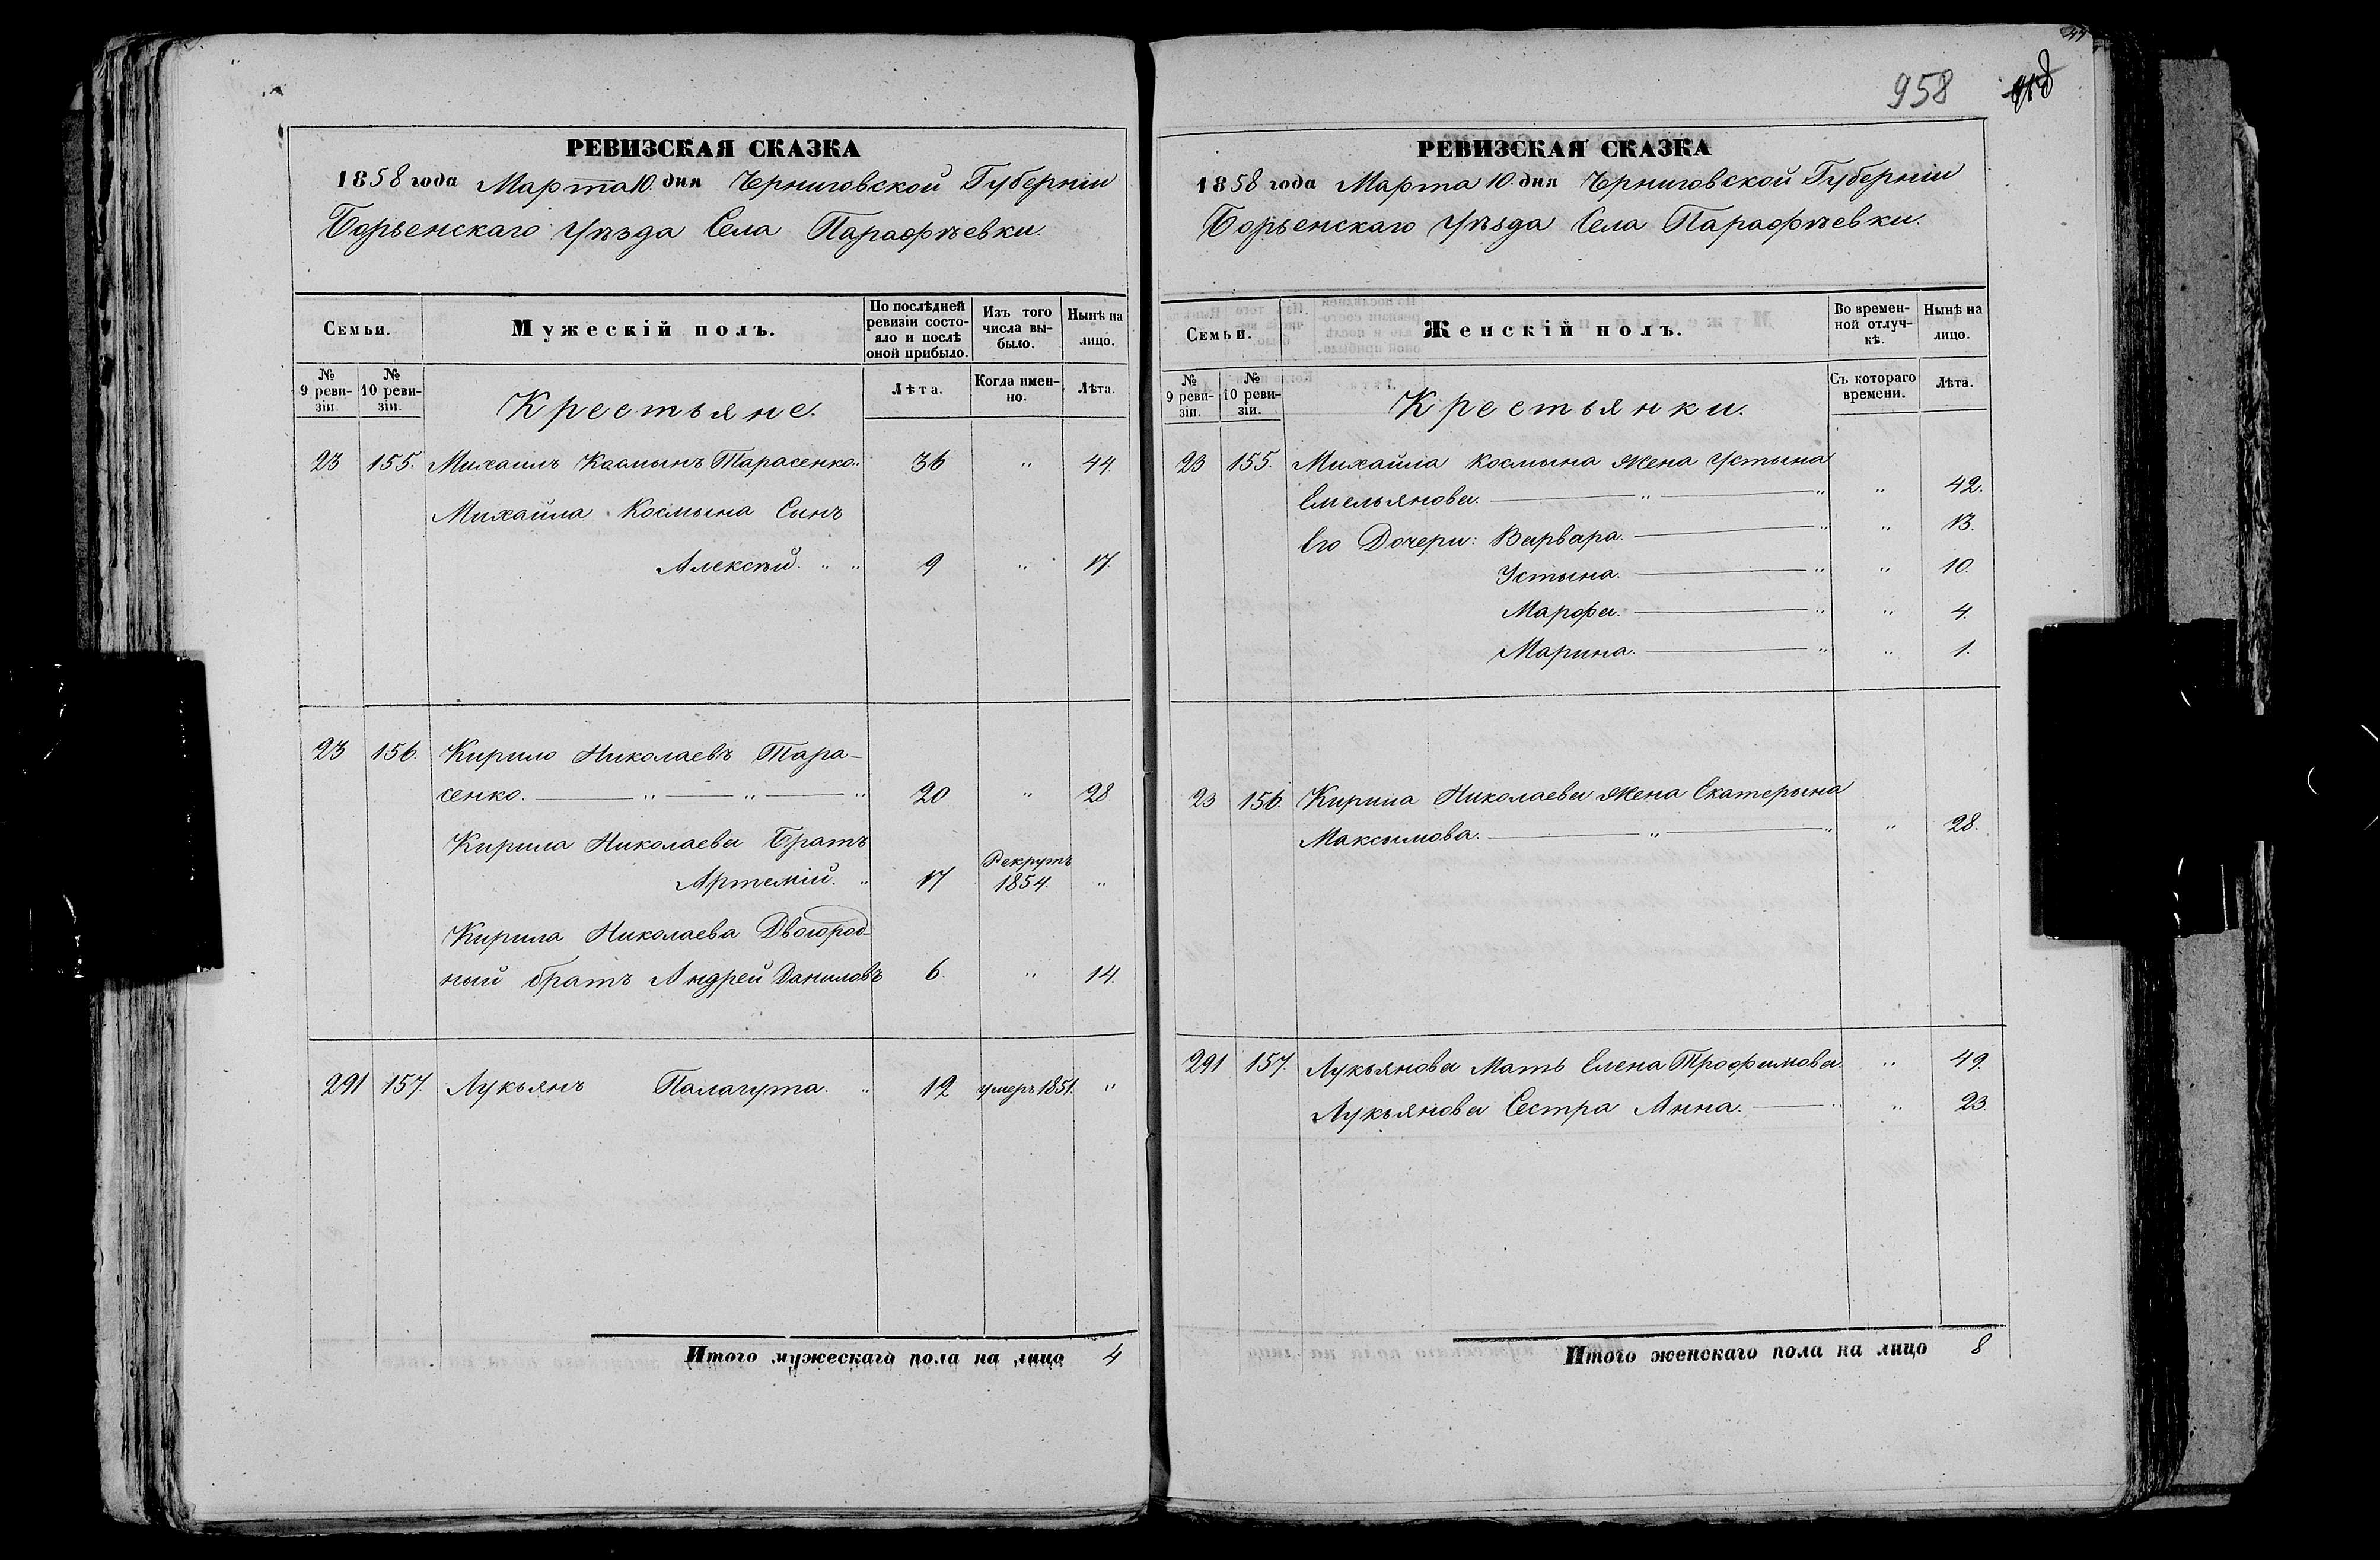 РЕВИЗСКАЯ СКАЗКА
1858 года Марта 10. дня Черниговской Губерніи
Борзенскаго Уѣзда Села Парафѣевки.
Семьи.
Мужескій полъ.
По послѣдней ревизіи состояло и послѣ оной прибыло.
Изъ того числа выбыло.
Нынѣ на лицо.
№ 9 ревизіи.
№ 10 ревизіи.
Крестьяне.
Лѣта.
Когда именно.
Лѣта.
23 155. Михаилъ Космынъ Тарасенко. 36 " 44.
Михайла Космына Сынъ
Алексѣй. " " 9 " 17.
23 156. Кирило Николаевъ Тара-
сенко. " " " 20 " 28
Кирила Николаева Братъ
Рекрутъ
Артемій. " 17 1854. "
Кирила Николаева Двоюрод-
ный братъ Андрей Даныловъ 6. " 14.
291 157. Лукьянъ Палагута. " 12 умеръ 1851. "
Итого мужескаго пола на лицо 4
958
РЕВИЗСКАЯ СКАЗКА
1858 года Марта 10. дня Черниговской Губерніи
Борзенскаго Уѣзда Села Парафѣевки.
Семьи.
Женскій полъ.
Во временной отлучкѣ.
Нынѣ на лицо.
№ 9 ревизіи.
№ 10 ревизіи.
Крестьянки.
Съ котораго времени.
Лѣта.
23 155. Михайла Космына Жена Устына
Емельянова. " " " 42.
Его Дочери: Варвара. " " 13.
Устына. " " 10.
Марфа. " " 4.
Марина. " " 1.
23 156. Кирила Николаева Жена Екатерына
Максымова. " " " 28.
291 157. Лукьянова Мать Елена Трофимова. " 49.
Лукьянова Сестра Анна. " " 23.
Итого женскаго пола на лицо 8